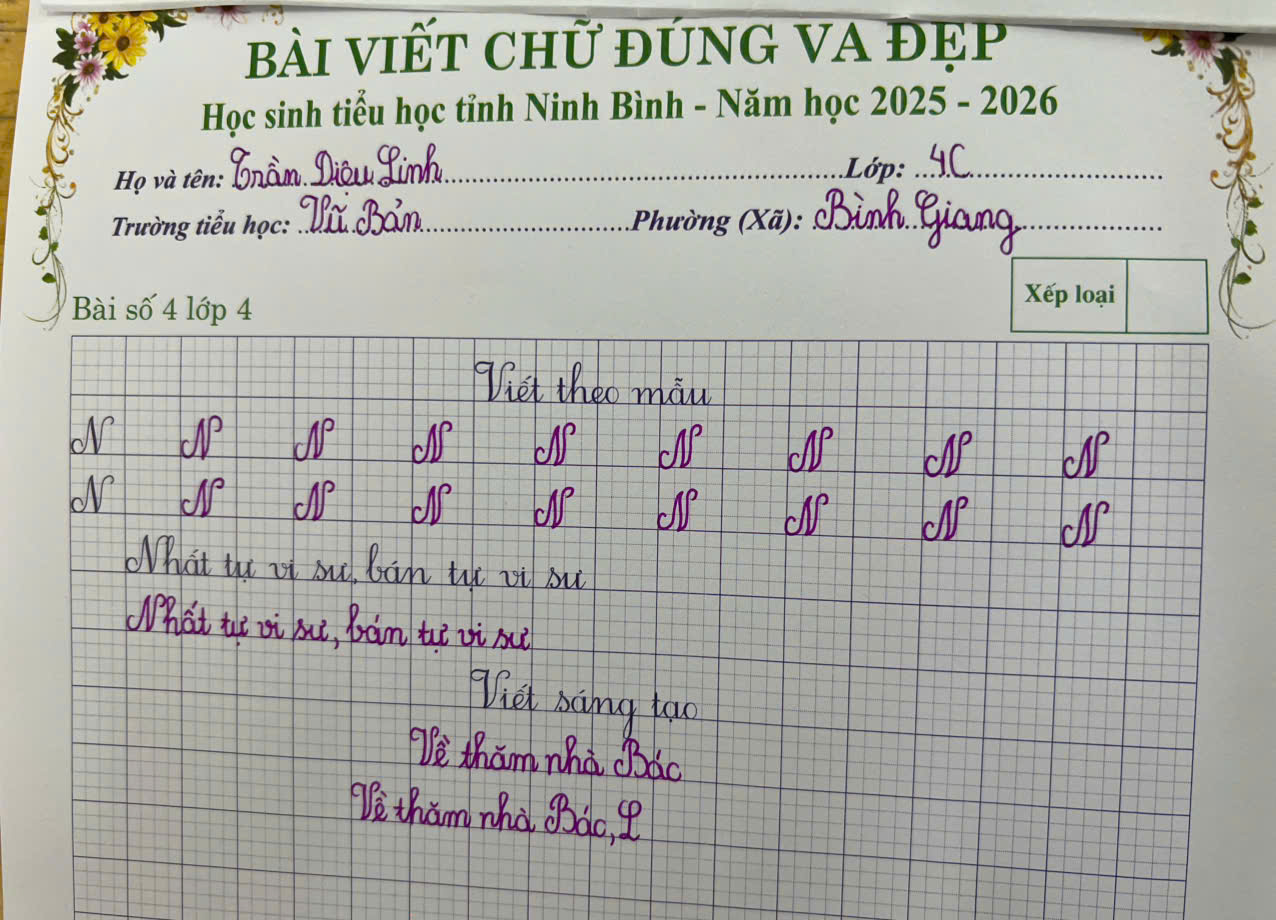 BÀI VIẾT CHỮ ĐÚNG VA ĐẸP
Học sinh tiểu học tỉnh Ninh Bình - Năm học 2025 - 2026
Họ và tên: Trần Diệu Linh Lớp: 4C
Trường tiểu học: Vũ Bản Phường (Xã): Bình Giang
Xếp loại
Bài số 4 lớp 4
Viết theo mẫu
N N N N N N N N N
N N N N N N N N N
Nhất tự vi sư, bán tự vi sư
Nhất tự vi sư, bán tự vi sư
Viết sáng tạo
Về thăm nhà Bác
Về thăm nhà Bác, L